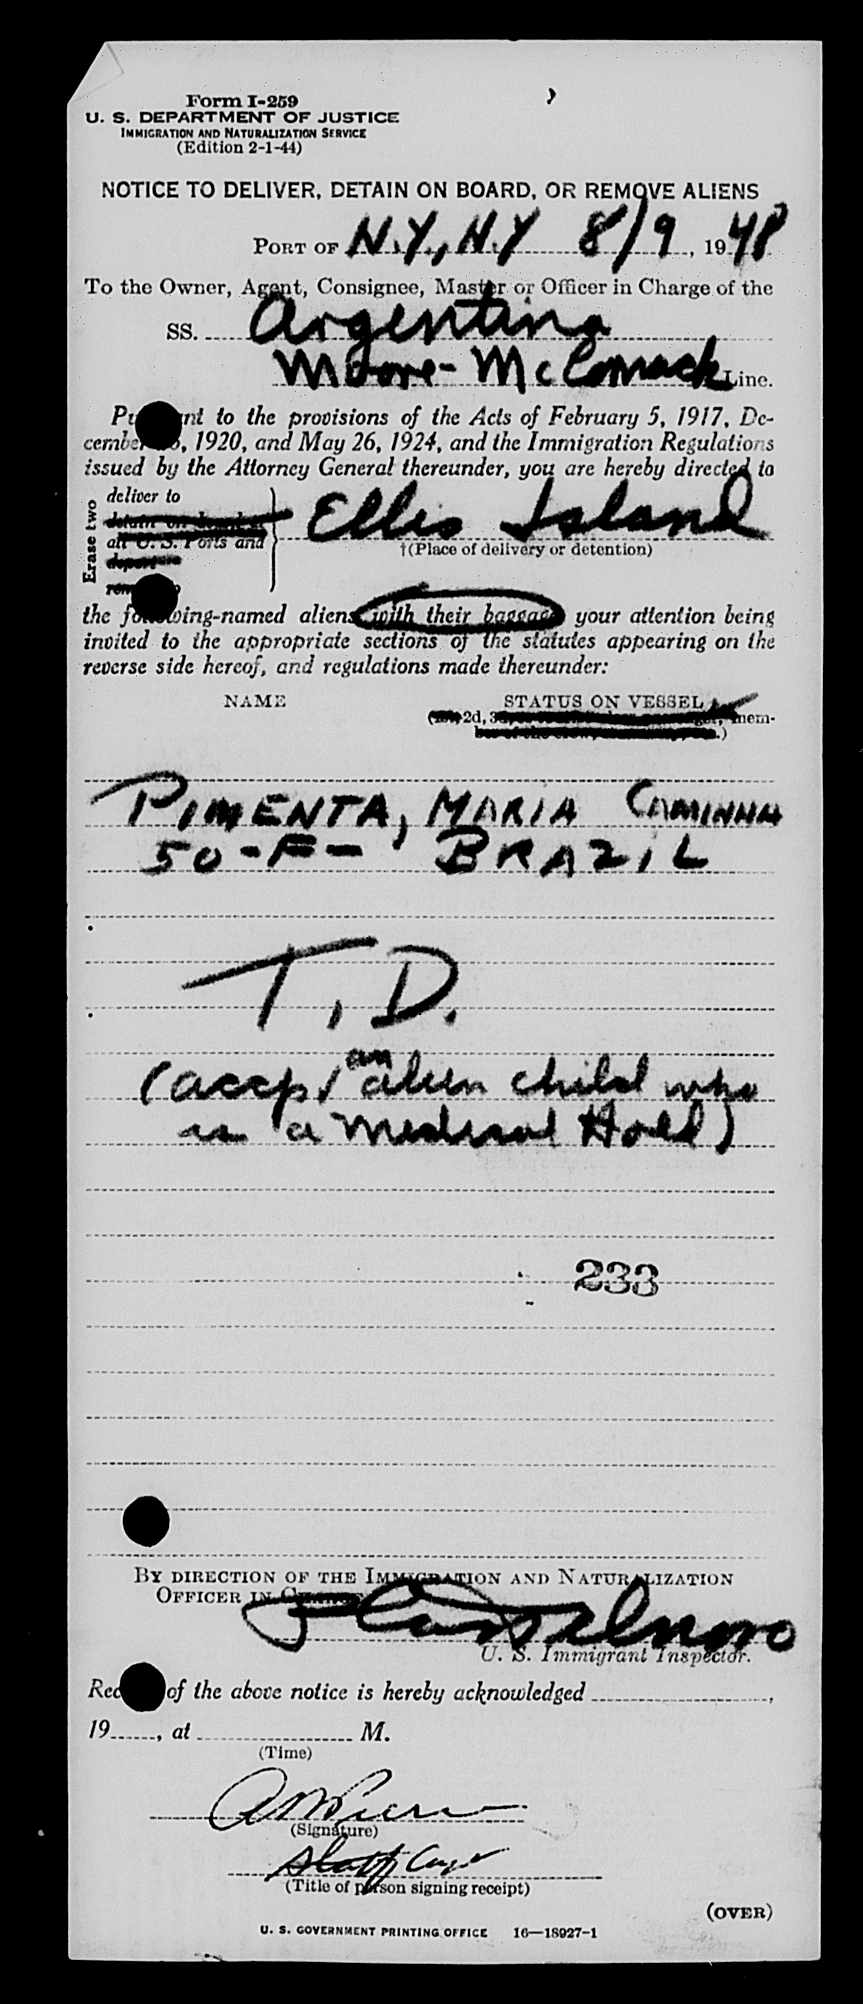 Form I-259
U. S. DEPARTMENT OF JUSTICE
IMMIGRATION AND NATURALIZATION SERVICE
(Edition 2-1-44)
NOTICE TO DELIVER, DETAIN ON BOARD, OR REMOVE ALIENS
PORT OF N.Y., N.Y 8/9, 1948
To the Owner, Agent, Consignee, Master or Officer in Charge of the
SS. Argentina
Moore-McCormack Line.
Pursuant to the provisions of the Acts of February 5, 1917, De-
cember 1920, and May 26, 1924, and the Immigration Regulations
issued by the Attorney General thereunder, you are hereby directed to
Erase two
deliver to
detain on board at
all U. S. Ports and
deport
Ellis Island
†(Place of delivery or detention)
the following-named aliens with their baggage your attention being
invited to the appropriate sections of the statutes appearing on the
reverse side hereof, and regulations made thereunder:
NAME STATUS ON VESSEL
2d, mem-
PIMENTA, MARIA CAMINHA
50-F- BRAZIL
T.D.
(accp/ an alien child who
is a Medical Hold)
233
BY DIRECTION OF THE IMMIGRATION AND NATURALIZATION
OFFICER IN CHARGE
U. S. Immigrant Inspector.
Receipt of the above notice is hereby acknowledged ,
19 , at M.
(Time)
(Signature)
(Title of person signing receipt)
(OVER)
U. S. GOVERNMENT PRINTING OFFICE 16—18927-1